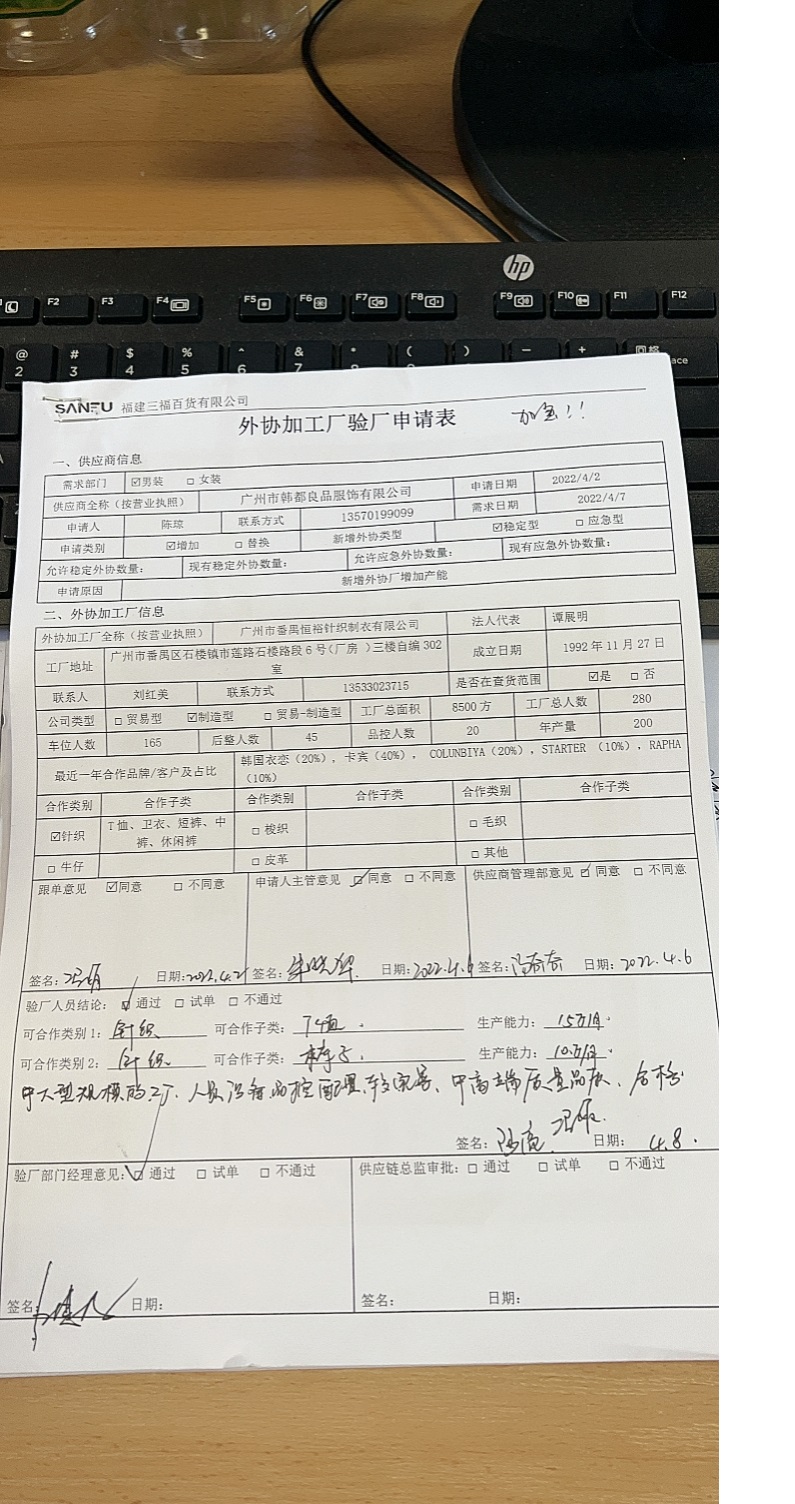 hp
F2 F3 F4 F5 F6 F7 F8 F9 F10 F11 F12
@ # $ % ^ & * ( ) — +
2 3 4 5 6 7
ace
SANFU 福建三福百货有限公司
外协加工厂验厂申请表 加急!!
一、供应商信息
需求部门 ☑男装 □ 女装 申请日期 2022/4/2
供应商全称（按营业执照） 广州市韩都良品服饰有限公司 需求日期 2022/4/7
申请人 陈琼 联系方式 13570199099 新增外协类型 ☑稳定型 □ 应急型
申请类别 ☑增加 □ 替换
允许稳定外协数量： 现有稳定外协数量： 允许应急外协数量： 现有应急外协数量：
申请原因 新增外协厂增加产能
二、外协加工厂信息
外协加工厂全称（按营业执照） 广州市番禺恒裕针织制衣有限公司 法人代表 谭展明
工厂地址 广州市番禺区石楼镇市莲路石楼路段6号（厂房 ）三楼自编302 成立日期 1992 年 11 月 27 日
室
联系人 刘红美 联系方式 13533023715 是否在查货范围 ☑是 □ 否
公司类型 □ 贸易型 ☑制造型 □ 贸易-制造型 工厂总面积 8500 方 工厂总人数 280
车位人数 165 后整人数 45 品控人数 20 年产量 200
最近一年合作品牌/客户及占比 韩国衣恋（20%），卡宾（40%）， COLUNBIYA（20%），STARTER （10%），RAPHA
（10%）
合作类别 合作子类 合作类别 合作子类 合作类别 合作子类
☑针织 T 恤、卫衣、短裤、中 □ 梭织 □ 毛织
裤、休闲裤
□ 牛仔 □ 皮革 □ 其他
跟单意见 ☑同意 □ 不同意 申请人主管意见 ☑同意 □ 不同意 供应商管理部意见 ☑ 同意 □ 不同意
签名： 日期：2022.4.2 签名： 日期：2022.4.6 签名： 日期：2022.4.6
验厂人员结论： ☑ 通过 □ 试单 □ 不通过
可合作类别 1： 针织 可合作子类： T恤. 生产能力： 15万/月.
可合作类别 2： 针织 可合作子类： 裤子. 生产能力： 10万/月.
中大型规模的工厂. 人员设备品控配置较完善、中高端质量品质、合格.
签名： 日期： 4.8.
验厂部门经理意见：☑ 通过 □ 试单 □ 不通过 供应链总监审批：□ 通过 □ 试单 □ 不通过
签名： 日期： 签名： 日期：